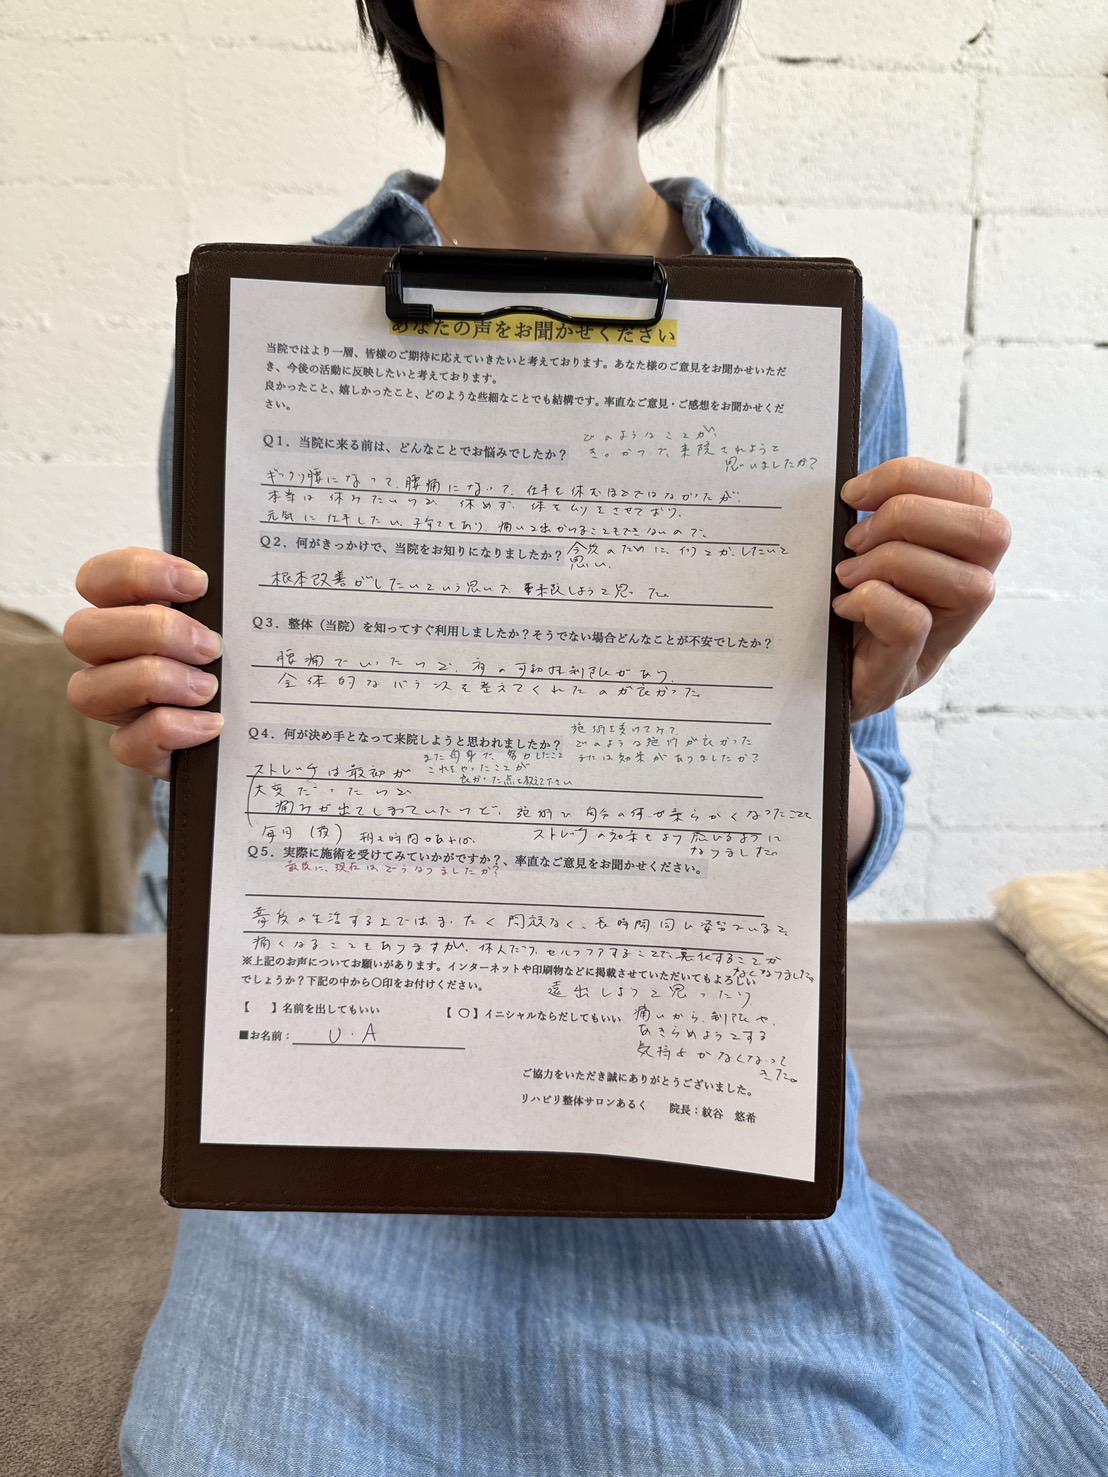 あなたの声をお聞かせください
当院ではより一層、皆様のご期待に応えていきたいと考えております。あなた様のご意見をお聞かせいただ
き、今後の活動に反映したいと考えております。
良かったこと、嬉しかったこと、どのような些細なことでも結構です。率直なご意見・ご感想をお聞かせくだ
さい。
Q1．当院に来る前は、どんなことでお悩みでしたか？
どのようなことが、
きっかけで、来院されようと
思いましたか？
ギックリ腰になって、腰痛になって、仕事を休むほどではなかったが、
本当は休みたいので 休めず、体をムリをさせており、
元気に仕事したい、子育てもあり、痛いと出かけることもできないので、
Q2．何がきっかけで、当院をお知りになりましたか？
今後のために、何とかしたいと
思い、
根本改善がしたいという思いで 来院しようと思った。
Q3．整体（当院）を知ってすぐ利用しましたか？そうでない場合どんなことが不安でしたか？
腰痛でいたので、 の可動域制限があり、
全体的なバランスを整えてくれたのが良かった
Q4．何が決め手となって来院しようと思われましたか？
施術を受けてみて
どのような施術が良かった
または効果がありましたか？
また自身で、努力したこと
これをやったことが
良かった点を教えて下さい
ストレッチは最初が
大変だったので
痛みが出てしまっていたけど、施術で 自分の体が柔らかくなったことで
毎日（夜） 朝も時間があれば ストレッチの効果もより感じるように
なりました。
Q5．実際に施術を受けてみていかがですか？、率直なご意見をお聞かせください。
最後に、現在は、どうなりましたか？
普段の生活する上ではまったく問題なく、長時間同じ姿勢でいると、
痛くなることもありますが、休んだり、セルフケアすることで、悪化することが
なくなりました。
※上記のお声についてお願いがあります。インターネットや印刷物などに掲載させていただいてもよろしい
でしょうか？下記の中から〇印をお付けください。
遠出しようと思ったり
【　】名前を出してもいい 【 〇 】イニシャルならだしてもいい
痛いから、制限や、
あきらめようとする
気持ちがなくなって
きた。
■お名前： U.A
ご協力をいただき誠にありがとうございました。
リハビリ整体サロンあるく 院長：紋谷 悠希